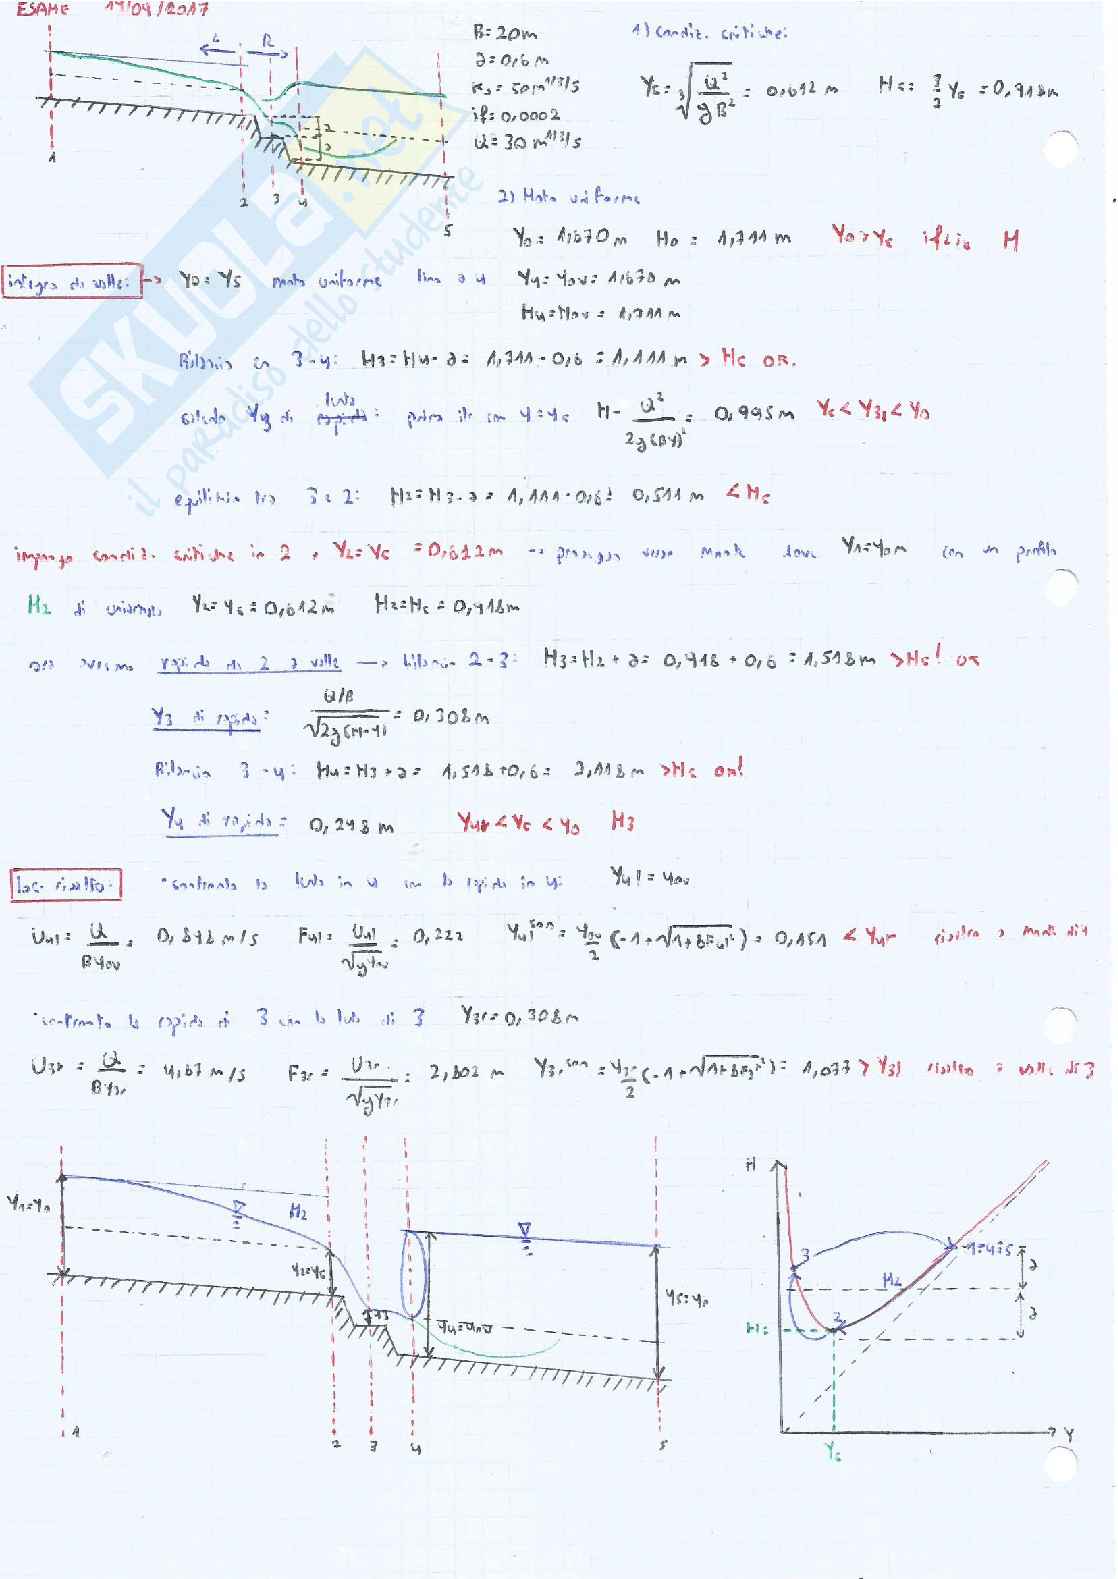 ESAME 19/04/2017
B = 20m
a = 0,6 m
Ks = 50 m^1/3/s
if = 0,0002
Q = 30 m^1/3/s
1) Condiz. critiche:
Yc = ∛(Q²/gB²) = 0,612 m Hc = 3/2 Yc = 0,918m
L R
1 2 3 4 5
2) Moto uniforme
Y0 = 1,670 m H0 = 1,711 m Y0 > Yc if < ic M
integro da valle: → Y0 = Y5 moto uniforme fino a 4 Y4 = Y0v = 1,670 m
H4 = H0v = 1,711 m
Bilancio en 3-4: H3 = H4 - a = 1,711 - 0,6 = 1,111 m > Hc OK.
calcolo Y3 di lenta: H - Q²/2g(BY)² = 0,995 m Yc < Y3l < Y0
equilibrio tra 3 e 2: H2 = H3 - a = 1,111 - 0,6 = 0,511 m < Hc
impongo condiz. critiche in 2, Y2 = Yc = 0,612 m → proseguo verso monte dove Y1 = Y0m con un profilo
M2 di Y2 = Yc = 0,612 m H2 = Hc = 0,918m
rapida da 2 a valle → bilancio 2-3: H3 = H2 + a = 0,918 + 0,6 = 1,518 m > Hc! OK
Y3 di rapida: Q/B / √2g(H-Y) = 0,308 m
Bilancio 3-4: H4 = H3 + a = 1,518 + 0,6 = 2,118 m > Hc OK!
Y4 di rapida = 0,248 m Y4r < Yc < Y0 M3
loc. risalto: *confronto la lenta in 4 con la rapida in 4: Y4l = Y0v
U4l = Q/BY0v = 0,898 m/s F4l = U4l/√gY0v = 0,222 Y4l^son = Y0v/2 (-1+√1+8F4l²) = 0,151 < Y4r risalto a monte di 4
*confronto la rapida di 3 con la lenta di 3 Y3r = 0,308 m
U3r = Q/BY3r = 4,87 m/s F3r = U3r/√gY3r = 2,802 m Y3r^son = Y3r/2 (-1+√1+8F3²) = 1,077 > Y3l risalto a valle di 3
Y1=Y0 M2 Y2=Yc Y3 Y4=Y0v Y5=Y0
1 2 3 4 5
H 3 1=4=5 M2 a a Hc 2 Yc Y
SKUOLA.net
il paradiso dello studente